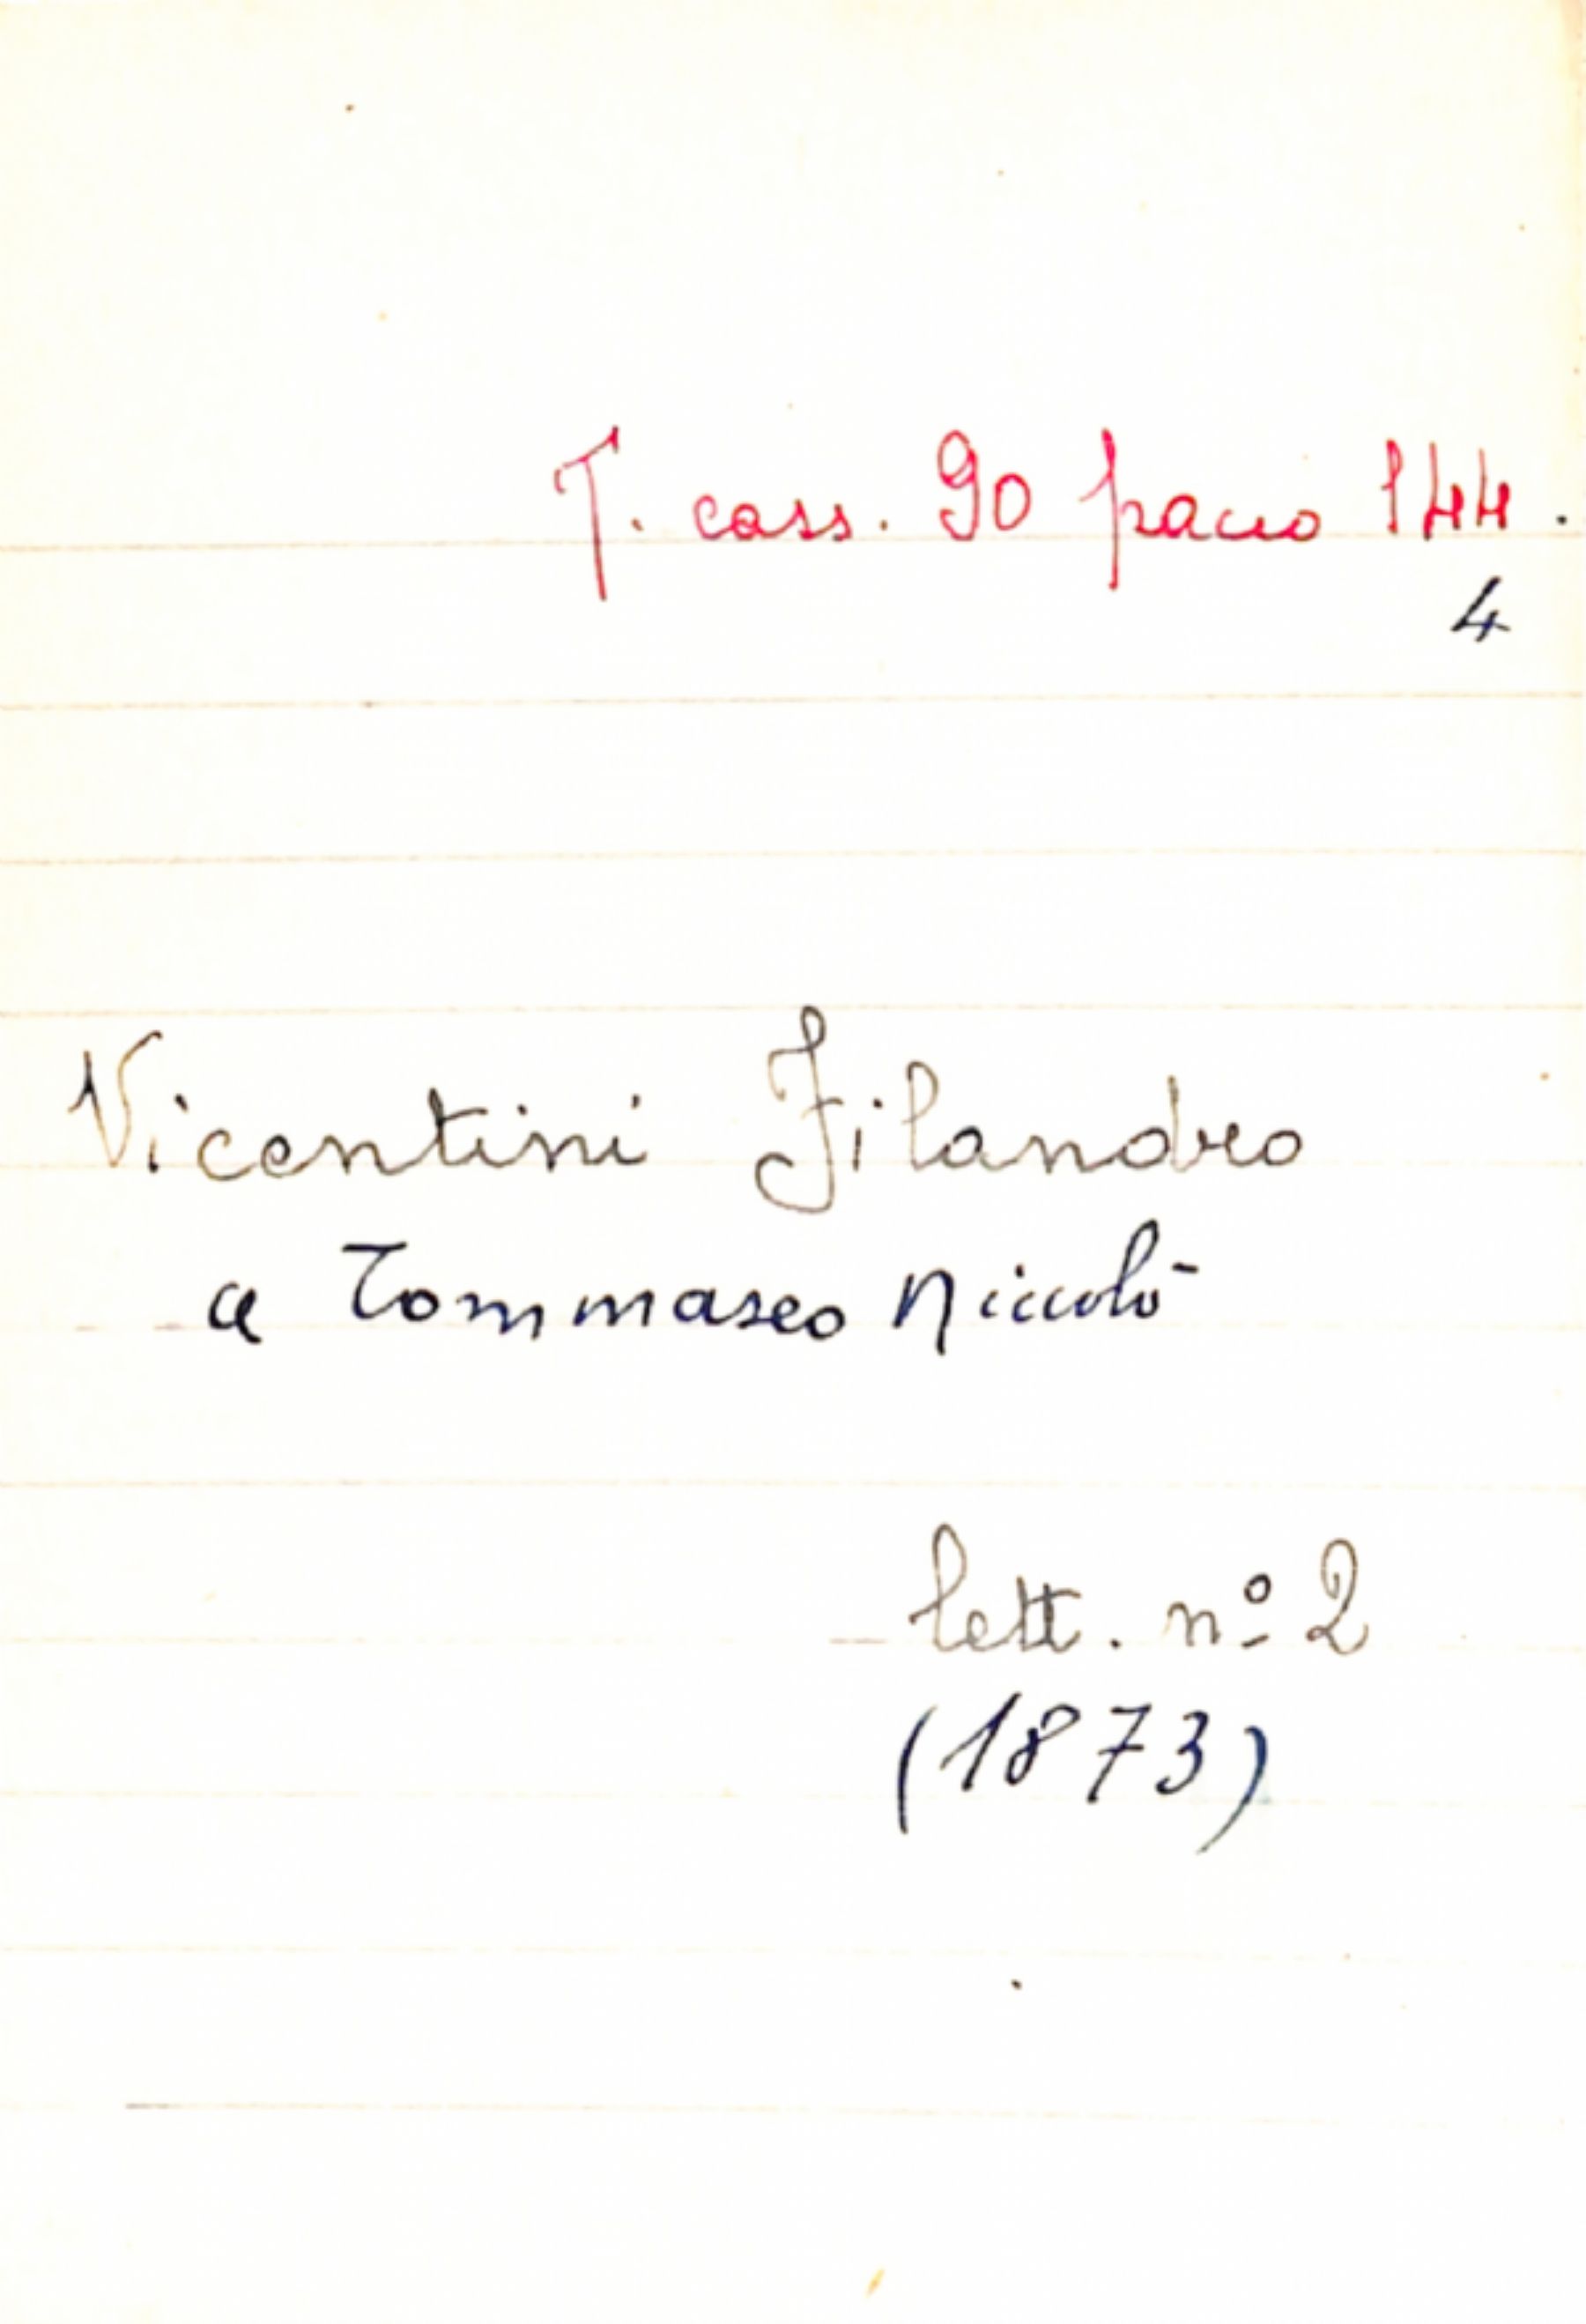 T. cass. 90 pacco 144.
4
Vicentini Filandro
a Tommaseo Niccolò
lett. nº 2
(1873)